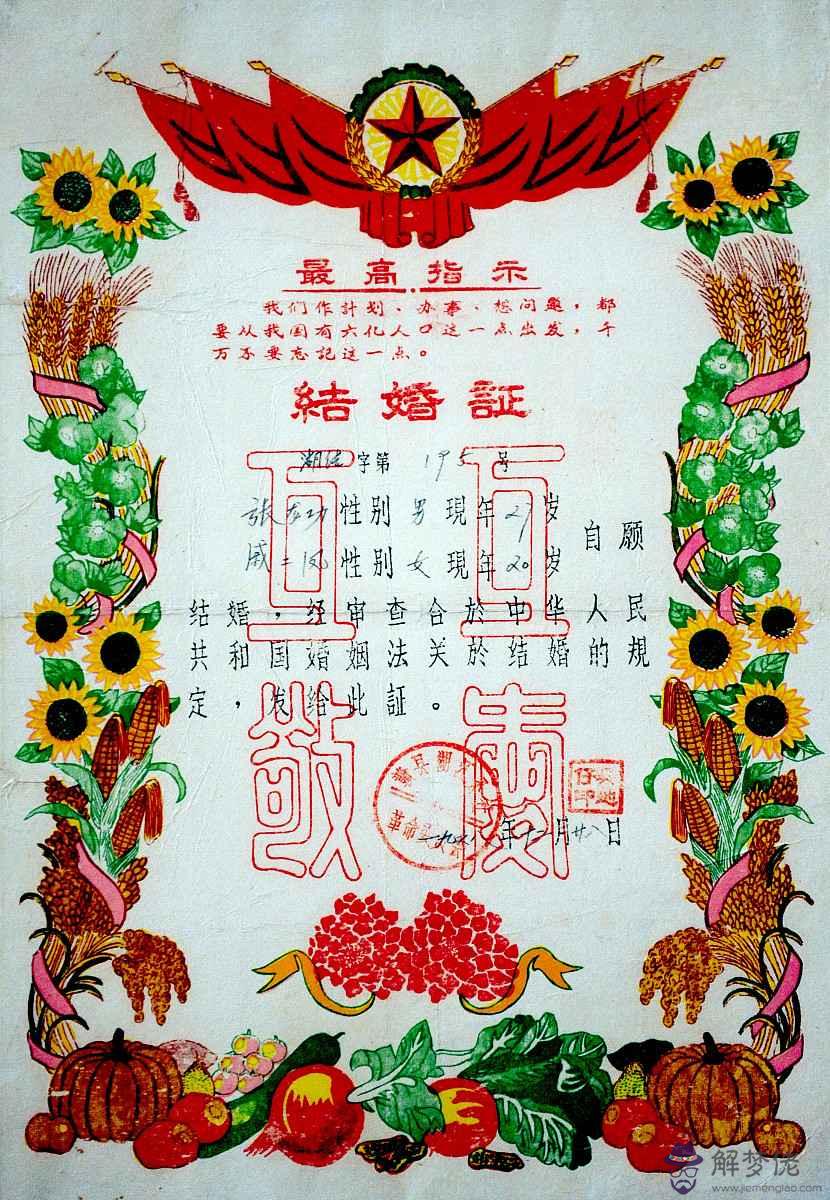 最高指示
我们作計划、办事、想问題，都
要从我国有六亿人口这一点出发，千
万不要忘記这一点。
結婚証
湖结字第 195 号
張友功 性别 男 現年 27 岁
戚二凤 性别 女 現年 20 岁 自愿
结婚，经审查合於中华人民
共和国婚姻法关於结婚的規
定，发给此証。
互 互
敬 爱
革命
一九六八年十二月廿八日
解梦佬
www.jiemenglao.com